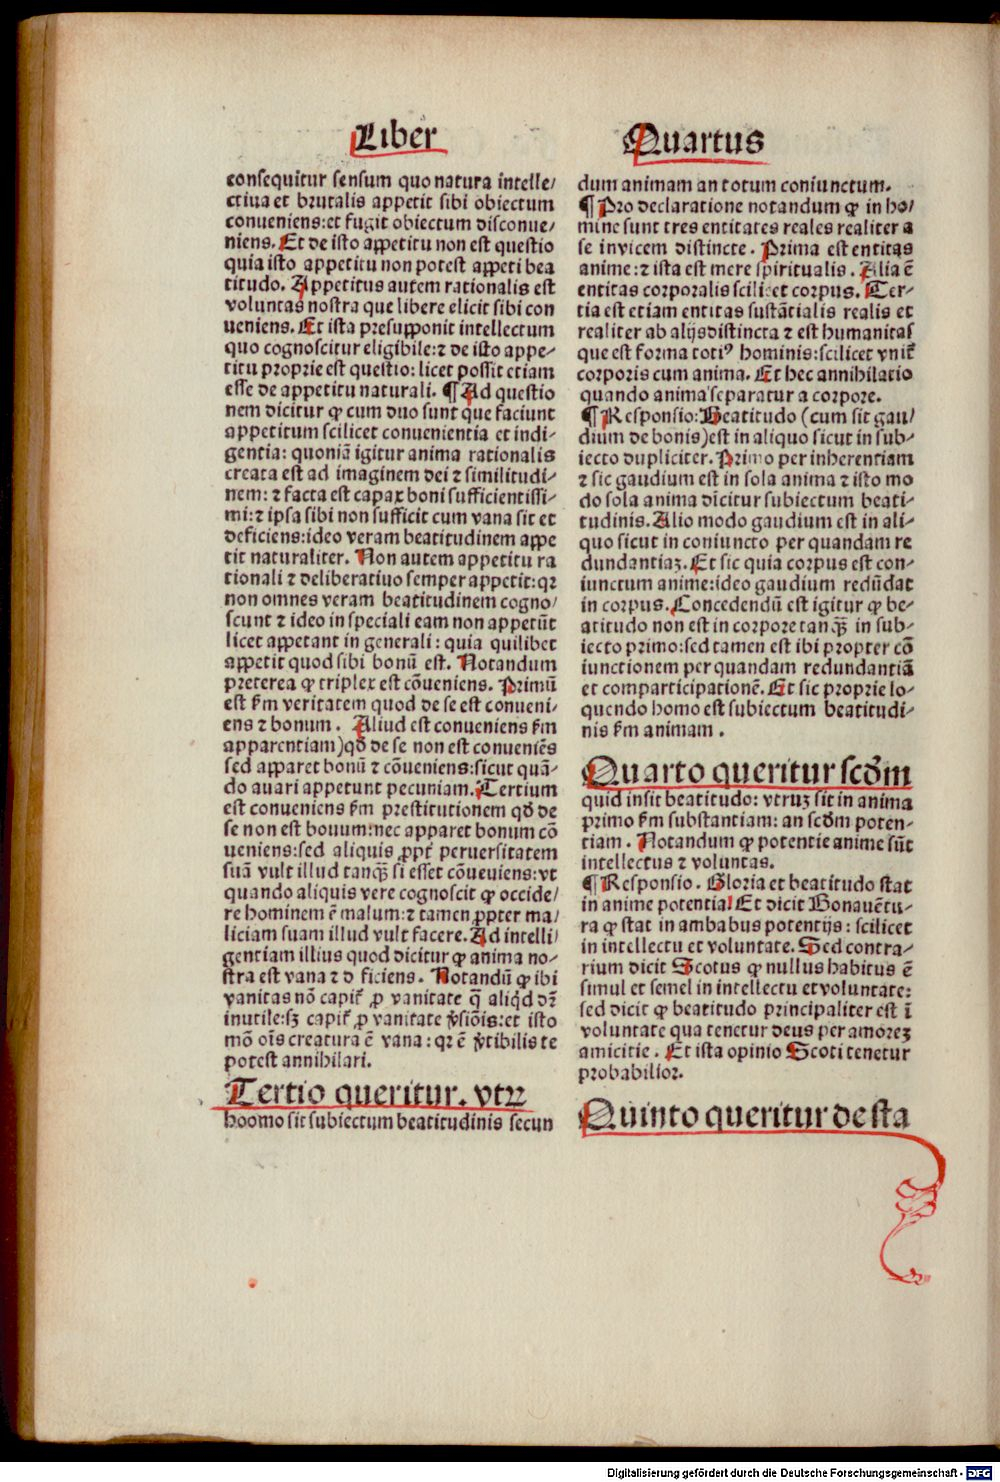 Liber
Quartus
consequitur sensum quo natura intelle/
ctiua et brutalis appetit sibi obiectum
conueniens:et fugit obiectum disconue/
niens. Et de isto appetitu non est questio
quia isto appetitu non potest appeti bea
titudo. Appetitus autem rationalis est
voluntas nostra que libere elicit sibi con
ueniens. Et ista presupponit intellectum
quo cognoscitur eligibile:⁊ de isto appe-
titu proprie est questio: licet possit etiam
esse de appetitu naturali. ¶ Ad questio
nem dicitur ꝙ cum duo sunt que faciunt
appetitum scilicet conuenientia et indi-
gentia: quoniā igitur anima rationalis
creata est ad imaginem dei ⁊ similitudi-
nem: ⁊ facta est capax boni sufficientissi-
mi:⁊ ipsa sibi non sufficit cum vana sit et
deficiens:ideo veram beatitudinem appe
tit naturaliter. Non autem appetitu ra
tionali ⁊ deliberatiuo semper appetit:qꝛ
non omnes veram beatitudinem cogno/
scunt ⁊ ideo in speciali eam non appetūt
licet appetant in generali: quia quilibet
appetit quod sibi bonū est. Notandum
preterea ꝙ triplex est cōueniens. Primū
est ẜm veritatem quod de se est conueni-
ens ⁊ bonum. Aliud est conueniens ẜm
apparentiam)qđ de se non est conueniēs
sed apparet bonū ⁊ cōueniens:sicut quā-
do auari appetunt pecuniam. Tertium
est conueniens ẜm prestitutionem qđ de
se non est bouum:nec apparet bonum cō
ueniens:sed aliquis ꝓpt̄ peruersitatem
suā vult illud tanqƷ si esset cōueuiens:vt
quando aliquis vere cognoscit ꝙ occide/
re hominem ē malum:⁊ tamen ꝓpter ma/
liciam suam illud vult facere. Ad intelli/
gentiam illius quod dicitur ꝙ anima no-
stra est vana ⁊ d ficiens. Notandū ꝙ ibi
vanitas nō capit̄ ꝓ vanitate q̄ aliq̇d dr̄
inutile:sꝫ capit̄ ꝓ vanitate ṽsiōis:et isto
mō oīs creatura ē vana: qꝛ ē ṽtibilis ⁊
potest annihilari.
Tertio queritur. vtꝝ
hoomo sit subiectum beatitudinis secun
dum animam an totum coniunctum.
¶ Pro declaratione notandum ꝙ in ho/
mine sunt tres entitates reales realiter a
se invicem distincte. Prima est entitas
anime:⁊ ista est mere spiritualis. Alia ē
entitas corporalis scilicet corpus. Ter-
tia est etiam entitas sustātialis realis et
realiter ab alijs distincta ⁊ est humanitas
que est forma totiꝰ hominis:scilicet vnit̄
corporis cum anima. Et hec annihilatio
quando anima separatur a corpore.
¶ Responsio: Beatitudo (cum sit gau/
dium de bonis)est in aliquo sicut in sub-
iecto dupliciter. Primo per inherentiam
⁊ sic gaudium est in sola anima ⁊ isto mo
do sola anima dicitur subiectum beati-
tudinis. Alio modo gaudium est in ali-
quo sicut in coniuncto per quandam re
dundantiaꝫ. Et sic quia corpus est con-
iunctum anime:ideo gaudium redūdat
in corpus. Concedendū est igitur ꝙ be-
atitudo non est in corpore tanqƷ in sub-
iecto primo:sed tamen est ibi propter cō
iunctionem per quandam redundantiā
et comparticipationē. Et sic proprie lo-
quendo homo est subiectum beatitudi-
nis ẜm animam.
Quarto queritur scđm
quid insit beatitudo: vtruꝫ sit in anima
primo ẜm substantiam: an scđm poten-
tiam. Notandum ꝙ potentie anime sūt
intellectus ⁊ voluntas.
¶ Responsio. Gloria et beatitudo stat
in anime potentia Et dicit Bonauētu-
ra ꝙ stat in ambabus potentijs: scilicet
in intellectu et voluntate. Sed contra-
rium dicit Scotus ꝙ nullus habitus ē
simul et semel in intellectu et voluntate:
sed dicit ꝙ beatitudo principaliter est ī
voluntate qua tenetur deus per amoreꝫ
amicitie. Et ista opinio Scoti tenetur
probabilior.
Quinto queritur de sta
Digitalisierung gefördert durch die Deutsche Forschungsgemeinschaft - DFG